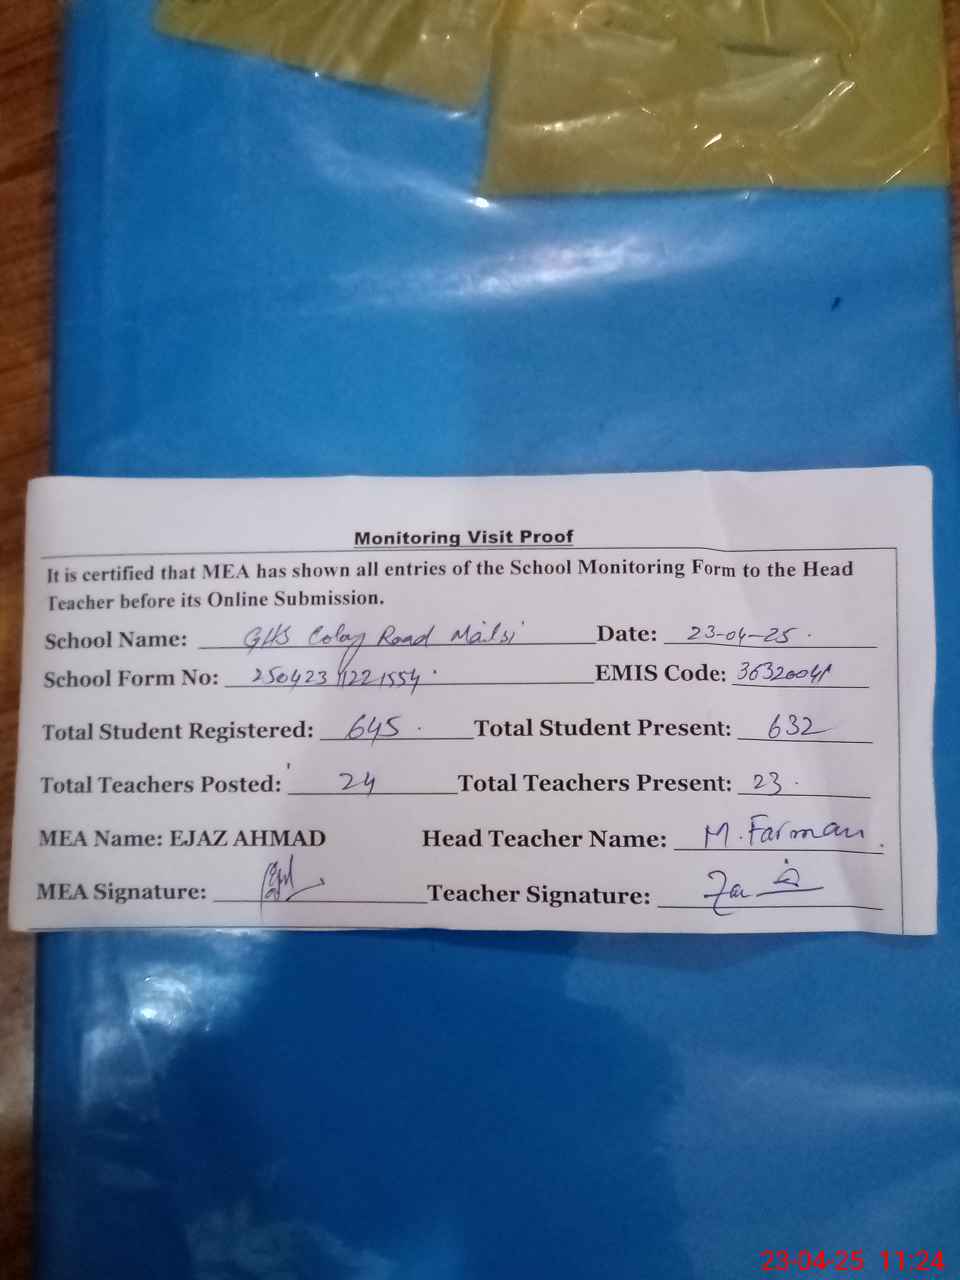 Monitoring Visit Proof
It is certified that MEA has shown all entries of the School Monitoring Form to the Head
Teacher before its Online Submission.
School Name: GHS Colony Road Mailsi Date: 23-04-25.
School Form No: 250423 11221554. EMIS Code:
Total Student Registered: 645. Total Student Present: 632
Total Teachers Posted: 24 Total Teachers Present: 23.
MEA Name: EJAZ AHMAD Head Teacher Name: M. Farman.
MEA Signature: Teacher Signature:
23-04-25 11:24